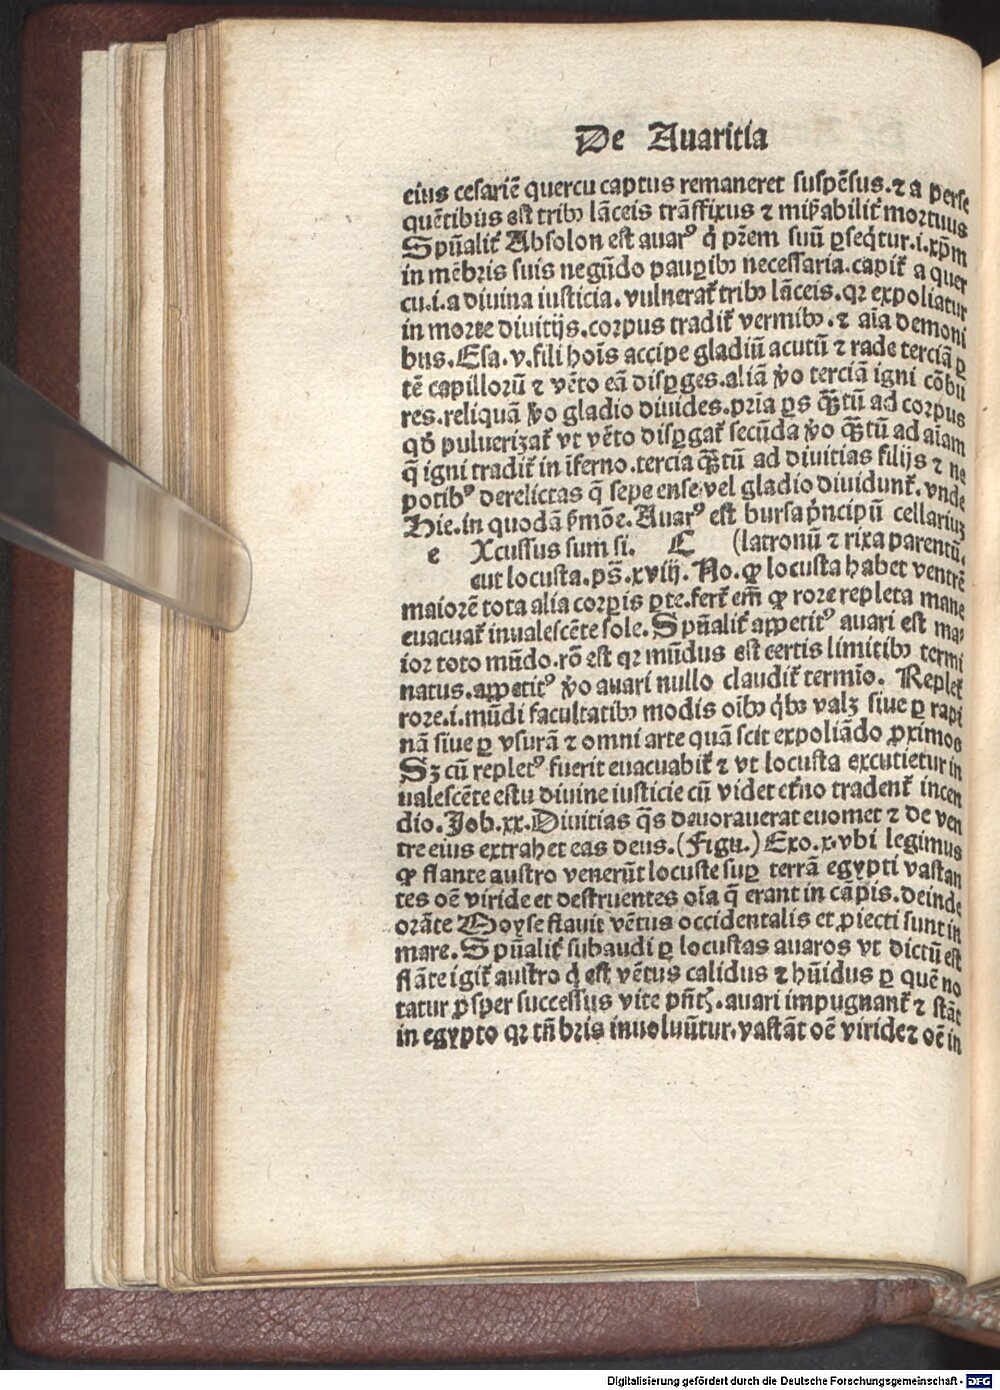 De Auaritia
eius cesariē quercu captus remaneret suspēsus.⁊ a perse
quētibus est tribꝫ lāceis trāffixus ⁊ mis̄abilit̄ mortuus
Spūalit̄ Absolon est auarꝰ q̇ pr̄em suū ꝑseq̄tur.i.xp̄m
in mēbris suis negūdo pauꝑibꝫ necessaria.capit̄ a quer
cu.i.a diuina iusticia.vulnerat̄ tribꝫ lāceis.qꝛ expoliatur
in morte diuitijs.corpus tradit̄ vermibꝫ.⁊ aīa demoni
bus.Esa.v.fili hoīs accipe gladiū acutū ⁊ rade terciā ꝑ
tē capillorū ⁊ vēto eā disꝑges.aliā v̊o terciā igni cōbu
res.reliquā v̊o gladio diuides.pr̄ia ꝑs qꝫ̄tū ad corpus
qd̄ puluerizat̄ vt vēto disꝑgat̄ secūda v̊o qꝫ̄tū ad aīam
q̄ igni tradit̄ in īferno.tercia qꝫ̄tū ad diuitias filijs ⁊ ne
potibꝰ derelictas q̄ sepe ense vel gladio diuidunt̄.vnde
Hie.in quodā s̄mōe.Auarꝰ est bursa pͥncipū cellariuꝫ
e Xcussus sum si. C (latronū ⁊ rixa parentū.
cut locusta.ps̄.xviij.No.ꝙ locusta habet ventrē
maiorē tota alia corꝑis ꝑte.fert̄ em̄ ꝙ rore repleta mane
euacuat̄ inualescēte sole.Spūalit̄ appetitꝰ auari est ma⸗
ior toto mūdo.rō est qꝛ mūdus est certis limitibꝫ termi
natus.appetitꝰ v̊o auari nullo claudit̄ termīo. Replet̄
rore.i.mūdi facultatibꝫ modis oībꝫ q̇bꝫ valꝫ siue ꝑ rapi
nā siue ꝑ vsurā ⁊ omni arte quā scit expoliādo ꝓximos
Sꝫ cū repletꝰ fuerit euacuabit̄ ⁊ vt locusta excutietur in
ualescēte estu diuine iusticie cū videt et̄no tradent̄ incen
dio.Job.xx.Diuitias q̄s deuorauerat euomet ⁊ de ven
tre eius extrahet eas deus.(Figu.) Exo.x.vbi legimus
ꝙ flante austro venerūt locuste suꝑ terrā egypti vastan
tes oē viride et destruentes oīa q̄ erant in cāpis.deinde
orāte Moyse flauit vētus occidentalis et ꝓiecti sunt in
mare.Spūalit̄ subaudi ꝑ locustas auaros vt dictū est
flāte igit̄ austro q̇ est vētus calidus ⁊ hūidus ꝑ quē no
tatur ꝓsper successus vite pn̄tꝭ.auari impugnant̄ ⁊ stāt
in egypto qꝛ tn̄bris inuoluūtur.vastāt oē viride⁊ oē in
Digitalisierung gefördert durch die Deutsche Forschungsgemeinschaft - DFG